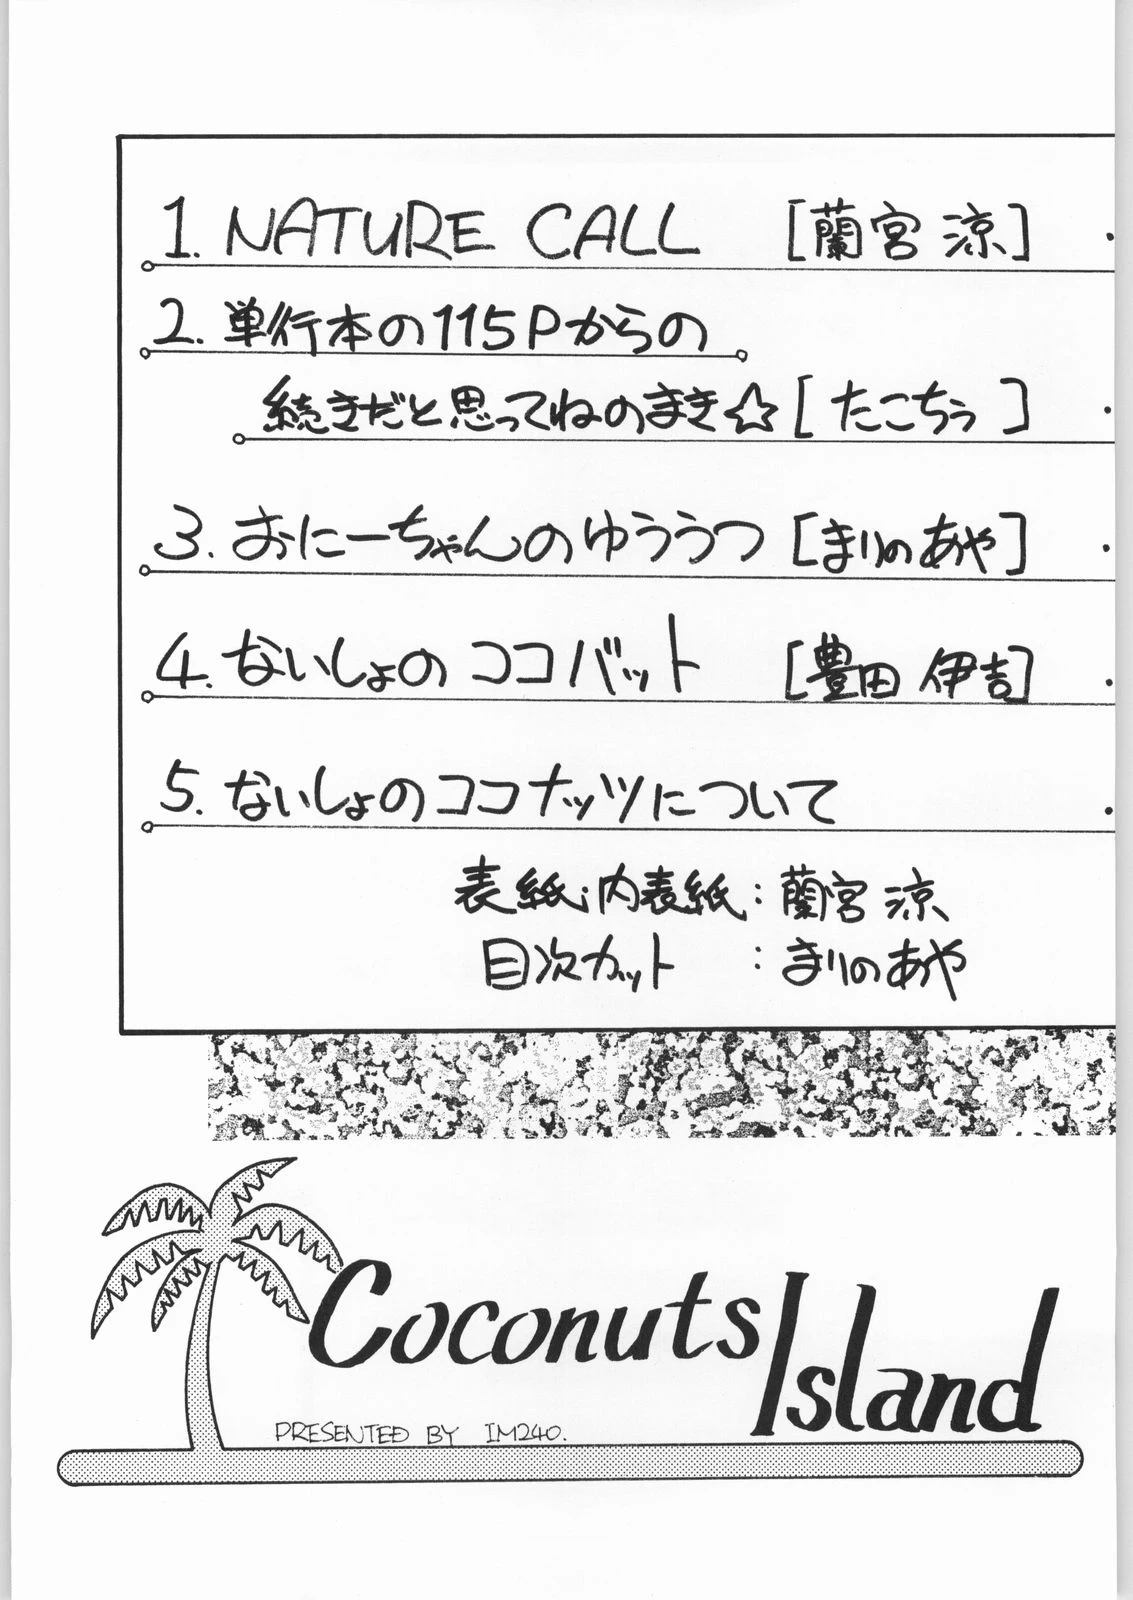 1. NATURE CALL [蘭宮 涼] ・
2. 単行本の115Pからの
続きだと思ってねのまき☆[たこちぅ] ・
3. おにーちゃんのゆううつ [まりのあや] ・
4. ないしょのココバット [豊田 伊吉] ・
5. ないしょのココナッツについて ・
表紙・内表紙:蘭宮 涼
目次カット :まりのあや
Coconuts
Island
PRESENTED BY IM240.